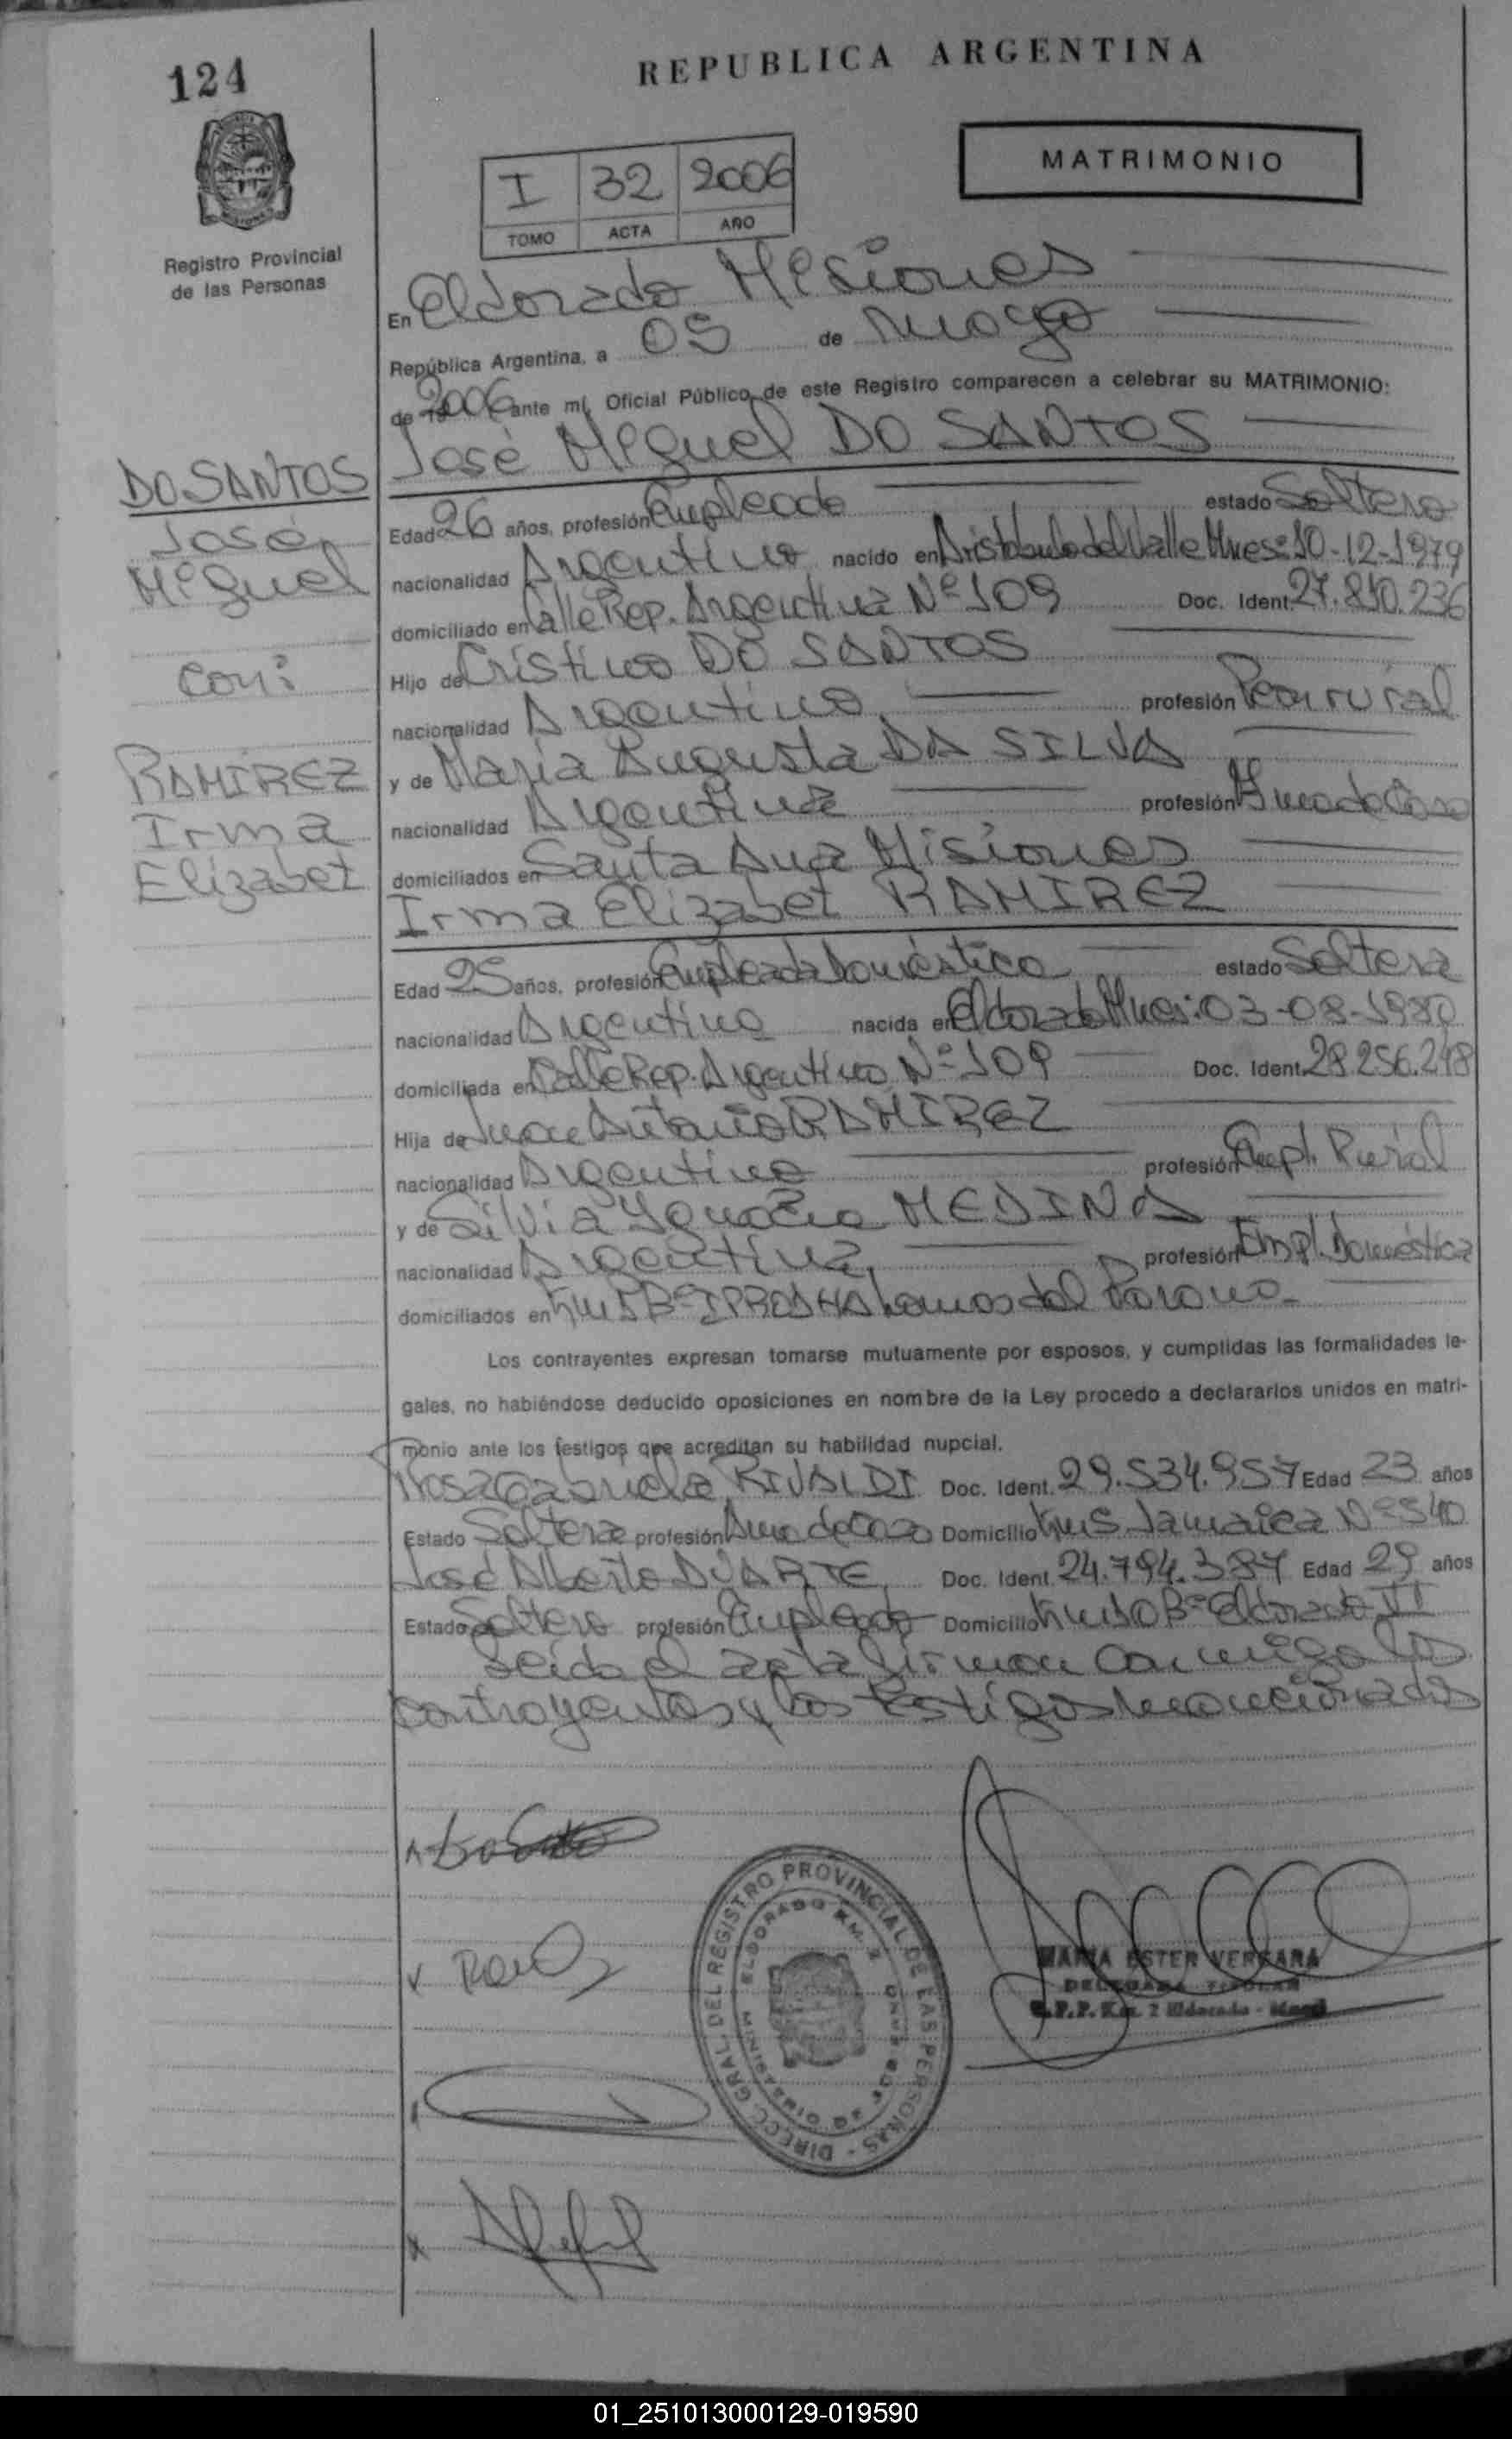 124
REPUBLICA ARGENTINA
MATRIMONIO
I 32 2006
TOMO ACTA AÑO
Registro Provincial
de las Personas
En Eldorado Misiones
República Argentina, a 05 de mayo
de 2006 ante mí, Oficial Público de este Registro comparecen a celebrar su MATRIMONIO:
José Miguel DO SANTOS
DO SANTOS
José
Miguel
con:
RAMIREZ
Irma
Elizabet
Edad 26 años, profesión Empleado estado Soltero
nacionalidad Argentino nacido en Aristobulo del Valle Mnes: 10-12-1979
domiciliado en Calle Rep. Argentina Nº 109 Doc. Ident. 27.810.236
Hijo de Cristino DO SANTOS
nacionalidad Argentino profesión Peon rural
y de Maria Augusta DA SILVA
nacionalidad Argentina profesión Ama de Casa
domiciliados en Santa Ana Misiones
Irma Elizabet RAMIREZ
Edad 25 años, profesión Empleada Doméstica estado Soltera
nacionalidad Argentina nacida en Eldorado Mnes: 03-08-1980
domiciliada en Calle Rep. Argentina Nº 109 Doc. Ident. 28.256.248
Hija de Juan Antonio RAMIREZ
nacionalidad Argentino profesión Empl. Rural
y de Silvia Ignacia MEDINA
nacionalidad Argentina profesión Empl. Doméstica
domiciliados en Bº IPRODHA del Parana-
Los contrayentes expresan tomarse mutuamente por esposos, y cumplidas las formalidades le-
gales, no habiéndose deducido oposiciones en nombre de la Ley procedo a declararlos unidos en matri-
monio ante los testigos que acreditan su habilidad nupcial.
Rosa Gabriela RIVALDI Doc. Ident. 29.534.957 Edad 23 años
Estado Soltera profesión Ama de Casa Domicilio Km 5 Jamaica Nº 540
José Alberto DUARTE Doc. Ident. 24.794.387 Edad 29 años
Estado Soltero profesión Empleado Domicilio Km 10 Bº Eldorado VI
Leida el acta firman conmigo los
contrayentes y los testigos mencionados
DIRECC. GRAL. DEL REGISTRO PROVINCIAL DE LAS PERSONAS
ELDORADO KM. 2
MARIA ESTER VERGARA
DELEGADA TITULAR
R.P.P. Km. 2 Eldorado - Mnes
01_251013000129-019590